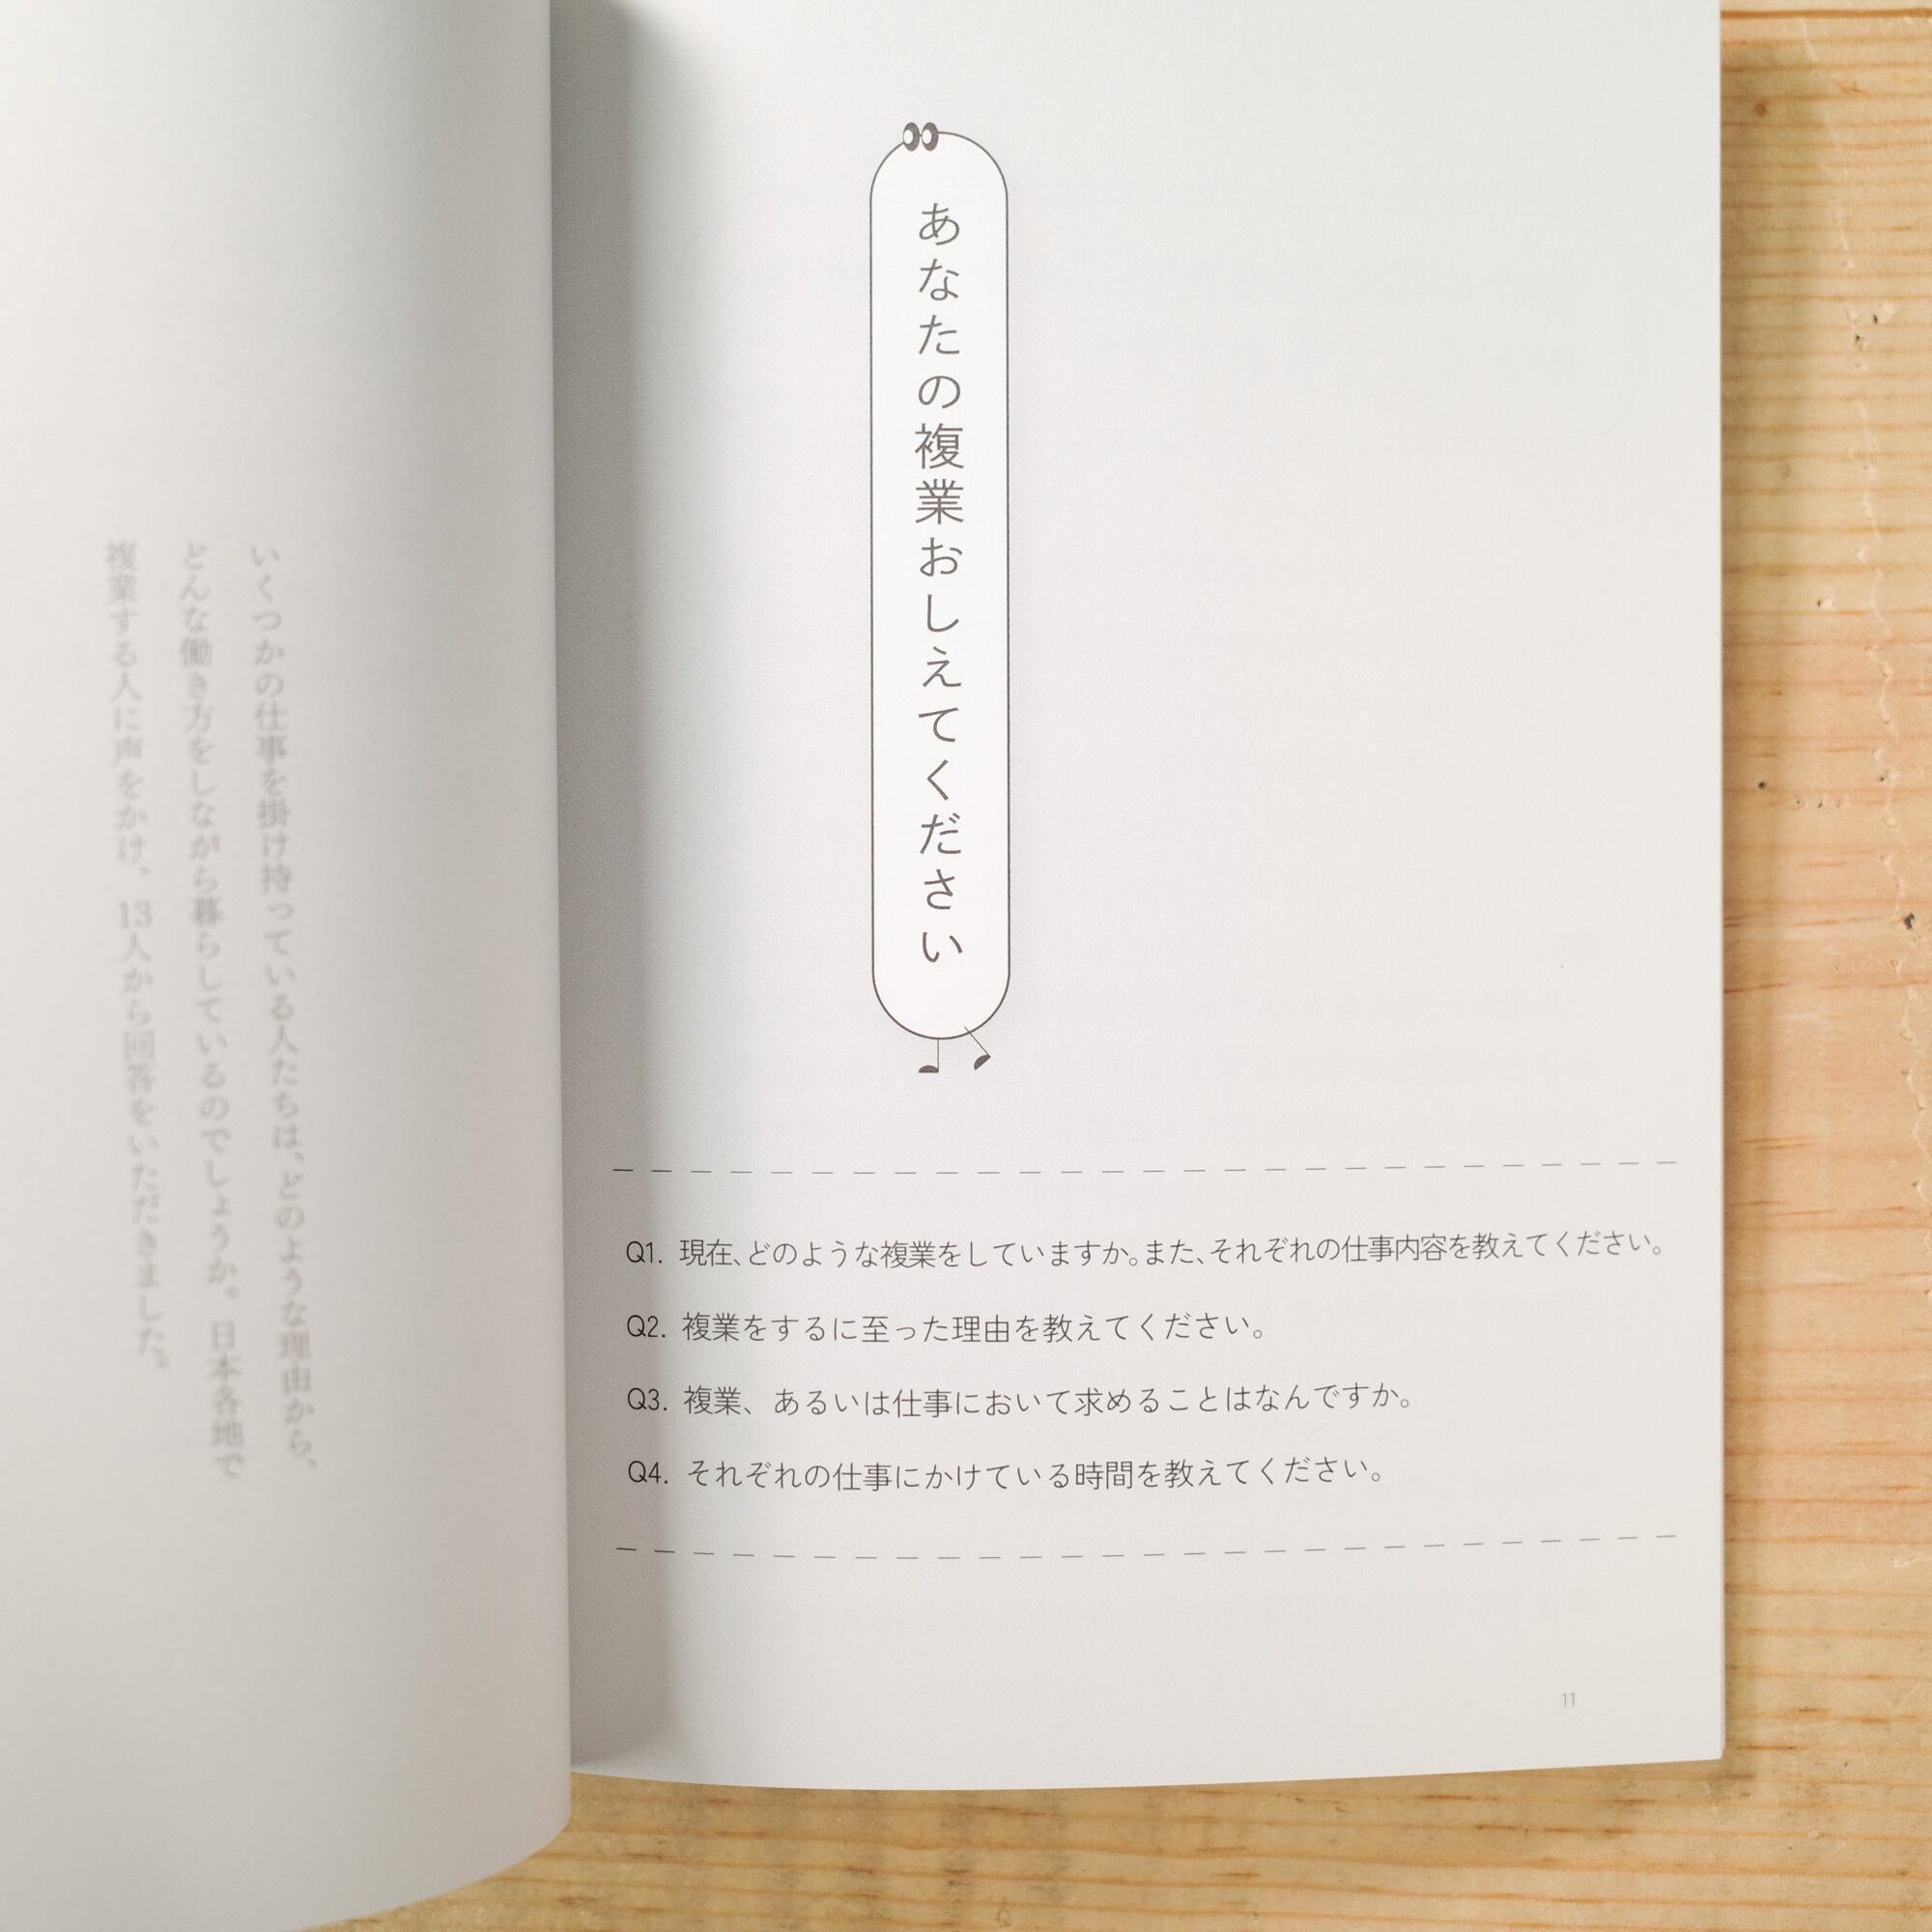 いくつかの仕事を掛け持っている人たちは、どのような理由から、
どんな働き方をしながら暮らしているのでしょうか。日本各地で
複業する人に声をかけ、13人から回答をいただきました。
あなたの複業おしえてください
Q1. 現在、どのような複業をしていますか。また、それぞれの仕事内容を教えてください。
Q2. 複業をするに至った理由を教えてください。
Q3. 複業、あるいは仕事において求めることはなんですか。
Q4. それぞれの仕事にかけている時間を教えてください。
11